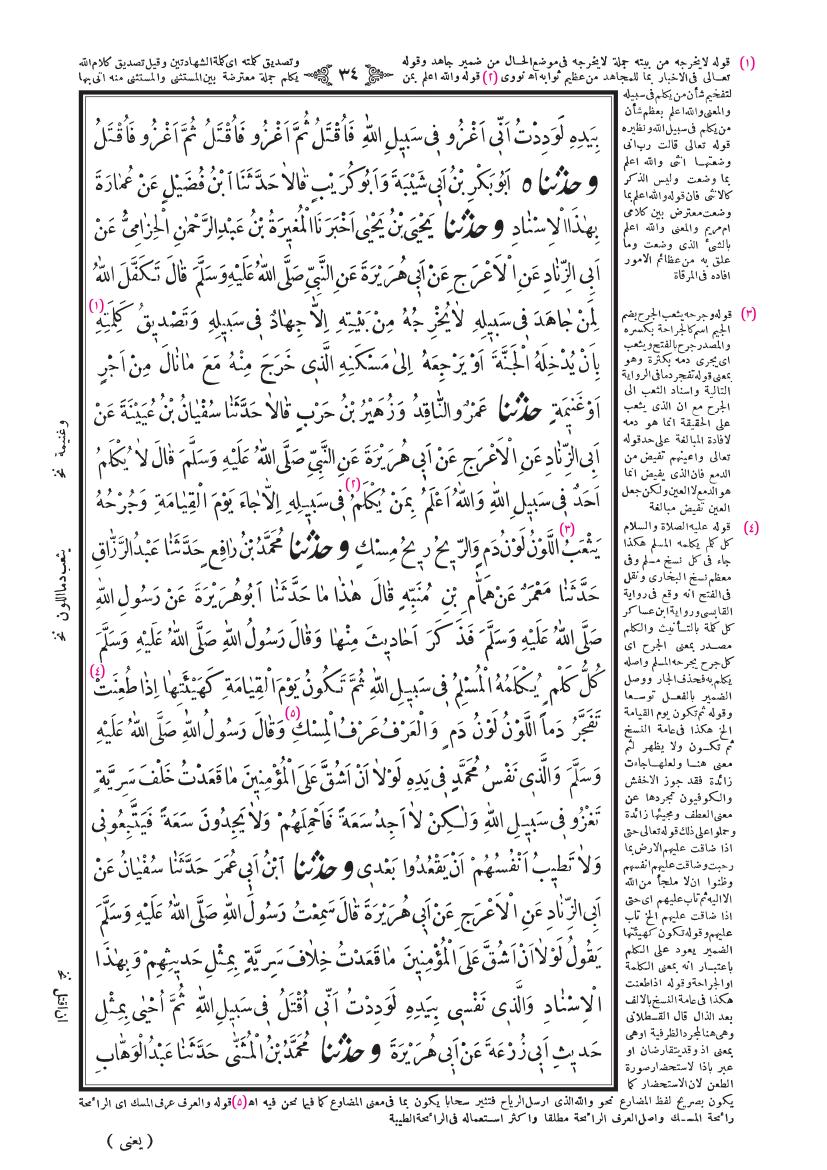 ٣٤
بِيَدِهِ لَوَدِدْتُ اَنّى اَغْزُو فى سَبيلِ اللهِ فَاُقْتَلُ ثُمَّ اَغْزُو فَاُقْتَلُ ثُمَّ اَغْزُو فَاُقْتَلُ
وحدثناه اَبُوبَكْرِ بْنُ اَبى شَيْبَةَ وَاَبُوكُرَيْبٍ قَالاَ حَدَّثَنَا ابْنُ فُضَيْلٍ عَنْ عُمَارَةَ
بِهٰذَا الْاِسْنَادِ وحدثنا يَحْيَى بْنُ يَحْيٰى اَخْبَرَنَا الْمُغيرَةُ بْنُ عَبْدِالرَّحْمٰنِ الْحِزَامِىُّ عَنْ
اَبِى الزِّنَادِ عَنِ الْاَعْرَجِ عَنْ اَبى هُرَيْرَةَ عَنِ النَّبِىِّ صَلَّى اللهُ عَلَيْهِ وَسَلَّمَ قَالَ تَكَفَّلَ اللهُ
لِمَنْ جَاهَدَ فى سَبيلِهِ لاَيُخْرِجُهُ مِنْ بَيْتِهِ اِلاَّ جِهَادٌ فى سَبيلِهِ وَتَصْديقُ كَلِمَتِهِ (١)
بِاَنْ يُدْخِلَهُ الْجَنَّةَ اَوْ يَرْجِعَهُ اِلىٰ مَسْكَنِهِ الَّذى خَرَجَ مِنْهُ مَعَ مَانَالَ مِنْ اَجْرٍ
اَوْغَنيمَةٍ حدثنا عَمْرٌو النَّاقِدُ وَزُهَيْرُ بْنُ حَرْبٍ قَالاَ حَدَّثَنَا سُفْيَانُ بْنُ عُيَيْنَةَ عَنْ
اَبِى الزِّنَادِ عَنِ الْاَعْرَجِ عَنْ اَبى هُرَيْرَةَ عَنِ النَّبِىِّ صَلَّى اللهُ عَلَيْهِ وَسَلَّمَ قَالَ لاَ يُكْلَمُ
اَحَدٌ فى سَبيلِ اللهِ وَاللهُ اَعْلَمُ بِمَنْ يُكْلَمُ (٢) فى سَبيلِهِ اِلاَّ جَاءَ يَوْمَ الْقِيَامَةِ وَجُرْحُهُ
يَثْعَبُ (٣) اللَّوْنُ لَوْنُ دَمٍ وَالرّيحُ ريحُ مِسْكٍ وحدثنا مُحَمَّدُ بْنُ رَافِعٍ حَدَّثَنَا عَبْدُالرَّزَّاقِ
حَدَّثَنَا مَعْمَرٌ عَنْ هَمَّامِ بْنِ مُنَبِّهٍ قَالَ هٰذَا مَا حَدَّثَنَا اَبُوهُرَيْرَةَ عَنْ رَسُولِ اللهِ
صَلَّى اللهُ عَلَيْهِ وَسَلَّمَ فَذَكَرَ اَحَاديثَ مِنْهَا وَقَالَ رَسُولُ اللهِ صَلَّى اللهُ عَلَيْهِ وَسَلَّمَ
كُلُّ كَلْمٍ يُكْلَمُهُ الْمُسْلِمُ فى سَبيلِ اللهِ ثُمَّ تَكُونُ يَوْمَ الْقِيَامَةِ كَهَيْئَتِهَا اِذَا طُعِنَتْ (٤)
تَفَجَّرُ دَماً اللَّوْنُ لَوْنُ دَمٍ وَالْعَرْفُ عَرْفُ الْمِسْكِ (٥) وَقَالَ رَسُولُ اللهِ صَلَّى اللهُ عَلَيْهِ
وَسَلَّمَ وَالَّذى نَفْسُ مُحَمَّدٍ فى يَدِهِ لَوْلاَ اَنْ اَشُقَّ عَلَى الْمُؤْمِنينَ مَا قَعَدْتُ خَلْفَ سَرِيَّةٍ
تَغْزُو فى سَبيلِ اللهِ وَلٰكِنْ لاَ اَجِدُ سَعَةً فَاَحْمِلَهُمْ وَلاَ يَجِدُونَ سَعَةً فَيَتَّبِعُونى
وَلاَ تَطيبُ اَنْفُسُهُمْ اَنْ يَقْعُدُوا بَعْدى وحدثنا ابْنُ اَبى عُمَرَ حَدَّثَنَا سُفْيَانُ عَنْ
اَبِى الزِّنَادِ عَنِ الْاَعْرَجِ عَنْ اَبى هُرَيْرَةَ قَالَ سَمِعْتُ رَسُولَ اللهِ صَلَّى اللهُ عَلَيْهِ وَسَلَّمَ
يَقُولُ لَوْلاَ اَنْ اَشُقَّ عَلَى الْمُؤْمِنينَ مَا قَعَدْتُ خِلاَفَ سَرِيَّةٍ بِمِثْلِ حَديثِهِمْ وَبِهٰذَا
الْاِسْنَادِ وَالَّذى نَفْسى بِيَدِهِ لَوَدِدْتُ اَنّى اُقْتَلُ فى سَبيلِ اللهِ ثُمَّ اُحْيٰى بِمِثْلِ
حَديثِ اَبى زُرْعَةَ عَنْ اَبى هُرَيْرَةَ وحدثنا مُحَمَّدُ بْنُ الْمُثَنّٰى حَدَّثَنَا عَبْدُالْوَهَّابِ
وغنيمة نخ
يثعب دما اللون نخ
(١) قوله لايخرجه من بيته جملة لايخرجه فى موضع الحال من ضمير جاهد وقوله
وتصديق كلمته اى كلمة الشهادتين وقيل تصديق كلام الله
تعالى فى الاخبار بما للمجاهد من عظيم ثوابه اه نووى (٢) قوله والله اعلم بمن
يكلم جملة معترضة بين المستثنى والمستثنى منه اتى بها
لتفخيم شأن من يكلم فى سبيله
والمعنى والله اعلم بعظم شأن
من يكلم فى سبيل الله ونظيره
قوله تعالى قالت رب انى
وضعتها انثى والله اعلم
بما وضعت وليس الذكر
كالانثى فان قوله والله اعلم بما
وضعت معترض بين كلامى
ام مريم والمعنى والله اعلم
بالشئ الذى وضعت وما
علق به من عظائم الامور
افاده فى المرقاة
(٣) قوله وجرحه يثعب الجرح بضم
الجيم اسم كالجراحة بكسره
والمصدر جرح بالفتح ويثعب
اى يجرى دمه بكثرة وهو
بمعنى قوله تفجر دما فى الرواية
التالية واسناد الثعب الى
الجرح مع ان الذى يثعب
على الحقيقة انما هو دمه
لافادة المبالغة على حد قوله
تعالى واعينهم تفيض من
الدمع فان الذى يفيض انما
هو الدمع لا العين ولكن جعل
العين تفيض مبالغة
(٤) قوله عليه الصلاة والسلام
كل كلم يكلمه المسلم هكذا
جاء فى كل نسخ مسلم وفى
معظم نسخ البخارى ونقل
فى الفتح انه وقع فى رواية
القابسى ورواية ابن عساكر
كل كلمة بالتأنيث والكلم
مصدر بمعنى الجرح اى
كل جرح يجرحه المسلم واصله
يكلم به فحذف الجار ووصل
الضمير بالفعل توسعا
وقوله ثم تكون يوم القيامة
الخ هكذا فى عامة النسخ
ثم تكون ولا يظهر لثم
معنى هنا ولعلها جاءت
زائدة فقد جوز الاخفش
والكوفيون تجردها عن
معنى العطف ومجيئها زائدة
وحملوا على ذلك قوله تعالى حتى
اذا ضاقت عليهم الارض بما
رحبت وضاقت عليهم انفسهم
وظنوا ان لا ملجأ من الله
الا اليه ثم تاب عليهم اى حتى
اذا ضاقت عليهم الخ تاب
عليهم وقوله تكون كهيئتها
الضمير يعود على الكلم
باعتبار انه بمعنى الكلمة
او الجراحة وقوله اذا طعنت
هكذا فى عامة النسخ بالالف
بعد الذال قال القسطلانى
وهى هنا لمجرد الظرفية او هى
بمعنى اذ وقد يتقارضان او
عبر باذا لاستحضار صورة
الطعن لان الاستحضار كما
يكون بصريح لفظ المضارع نحو والله الذى ارسل الرياح فتثير سحابا يكون بما فى معنى المضارع كما فيما نحن فيه اه (٥) قوله والعرف عرف المسك اى الرائحة
رائحة المسك واصل العرف الرائحة مطلقا واكثر استعماله فى الرائحة الطيبة
( يعنى )